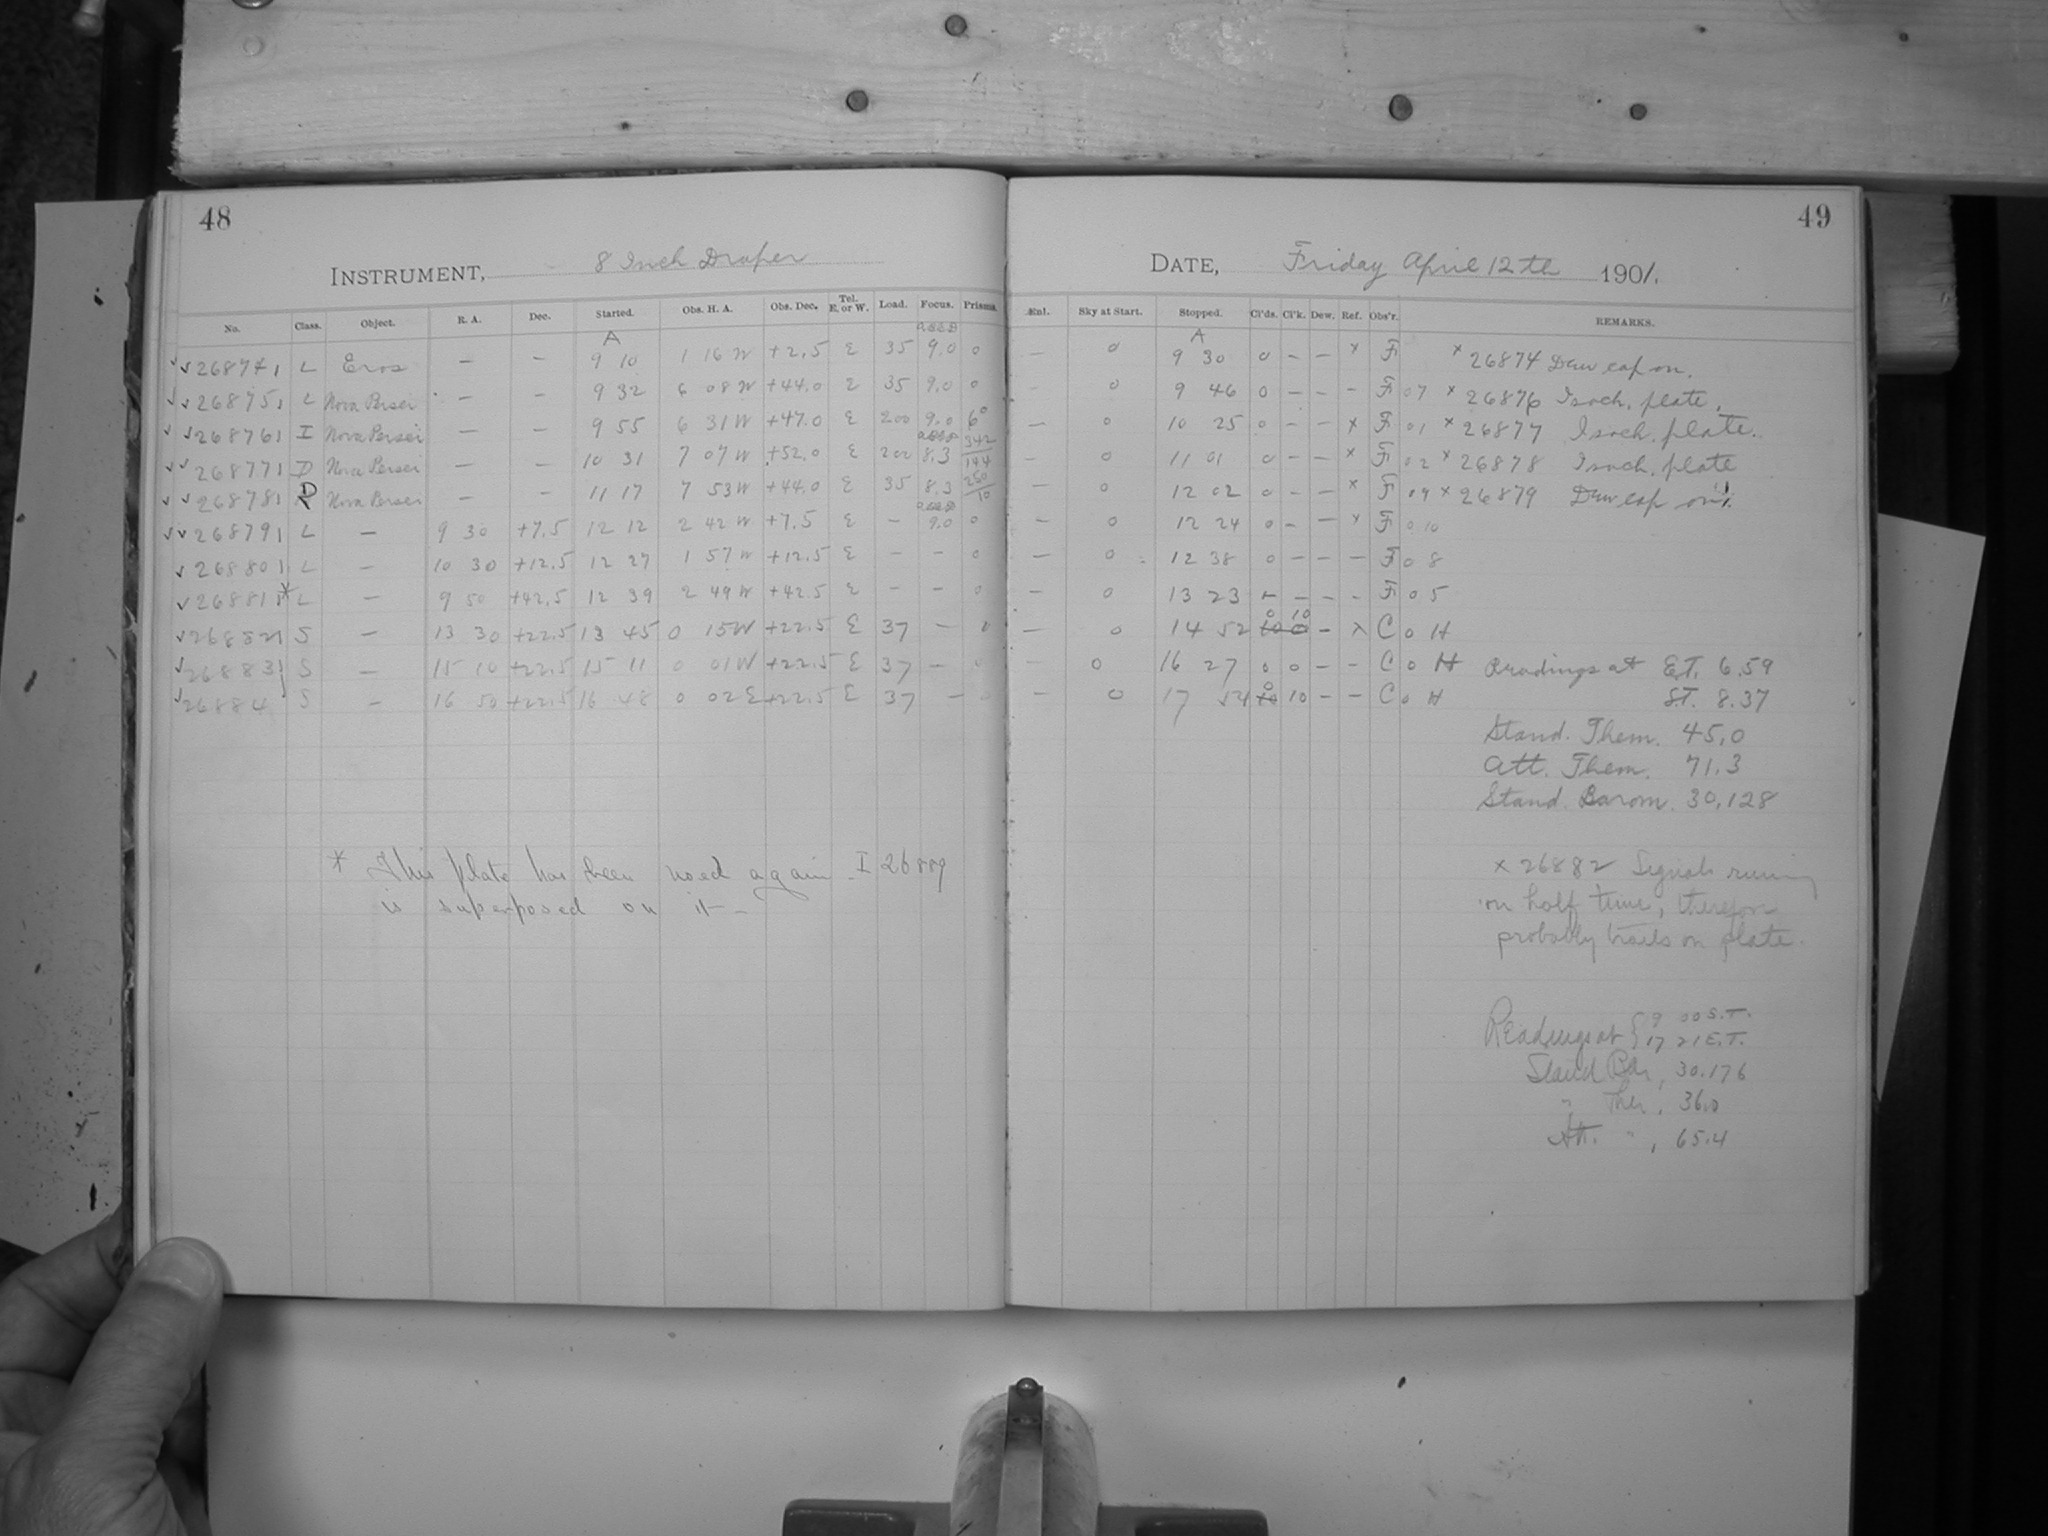 48
INSTRUMENT, 8 Inch Draper
No. Class. Object. R. A. Dec. Started. Obs. H. A. Obs. Dec. Tel. E. or W. Load. Focus. Prisms.
A
26874 L Eros — — 9 10 1 16 W +2.5 E 35 9.0 0
26875 L Nova Persei — — 9 32 6 08 W +44.0 E 35 9.0 0
26876 I Nova Persei — — 9 55 6 31 W +47.0 E 200 9.0 6°
26877 D Nova Persei — — 10 31 7 07 W +52.0 E 200 8.3 342/144
26878 D Nova Persei — — 11 17 7 53 W +44.0 E 35 8.3 250/10
26879 L — 9 30 +7.5 12 12 2 42 W +7.5 E — 9.0 0
26880 L — 10 30 +12.5 12 27 1 57 W +12.5 E — — 0
26881* L — 9 50 +42.5 12 39 2 49 W +42.5 E — — 0
26882 S — 13 30 +22.5 13 45 0 15 W +22.5 E 37 — 0
26883 S — 15 10 +22.5 15 11 0 01 W +22.5 E 37 — 0
26884 S — 16 50 +22.5 16 48 0 02 E +22.5 E 37 — 0
* This plate has been used again I 26889
is superposed on it —
49
DATE, Friday April 12th 1901.
Ænl. Sky at Start. Stopped. Cl'ds. Cl'k. Dew. Ref. Obs'r. REMARKS.
A
— 0 9 30 0 — — x F x 26874 Dew cap on.
— 0 9 46 0 — — — F 07 x 26876 Isoch. plate.
— 0 10 25 0 — — x F 01 x 26877 Isoch. plate.
— 0 11 01 0 — — x F 02 x 26878 Isoch. plate
— 0 12 02 0 — — x F 09 x 26879 Dew cap on.
— 0 12 24 0 — — x F 0 10
— 0 12 38 0 — — — F 0 8
— 0 13 23 — — — — F 0 5
— 0 14 52 0 10 — x C 0 H
— 0 16 27 0 0 — — C 0 H Readings at E.T. 6.59
— 0 17 54 0 10 — — C 0 H S.T. 8.37
Stand. Them. 45.0
Att. Them. 71.3
Stand. Barom. 30.128
x 26882 Signals running
on half time, therefore
probably trails on plate.
Readings at { 9 00 S.T.
17 21 E.T.
Stand Bar, 30.176
" Ther, 36.0
Att. ", 65.4